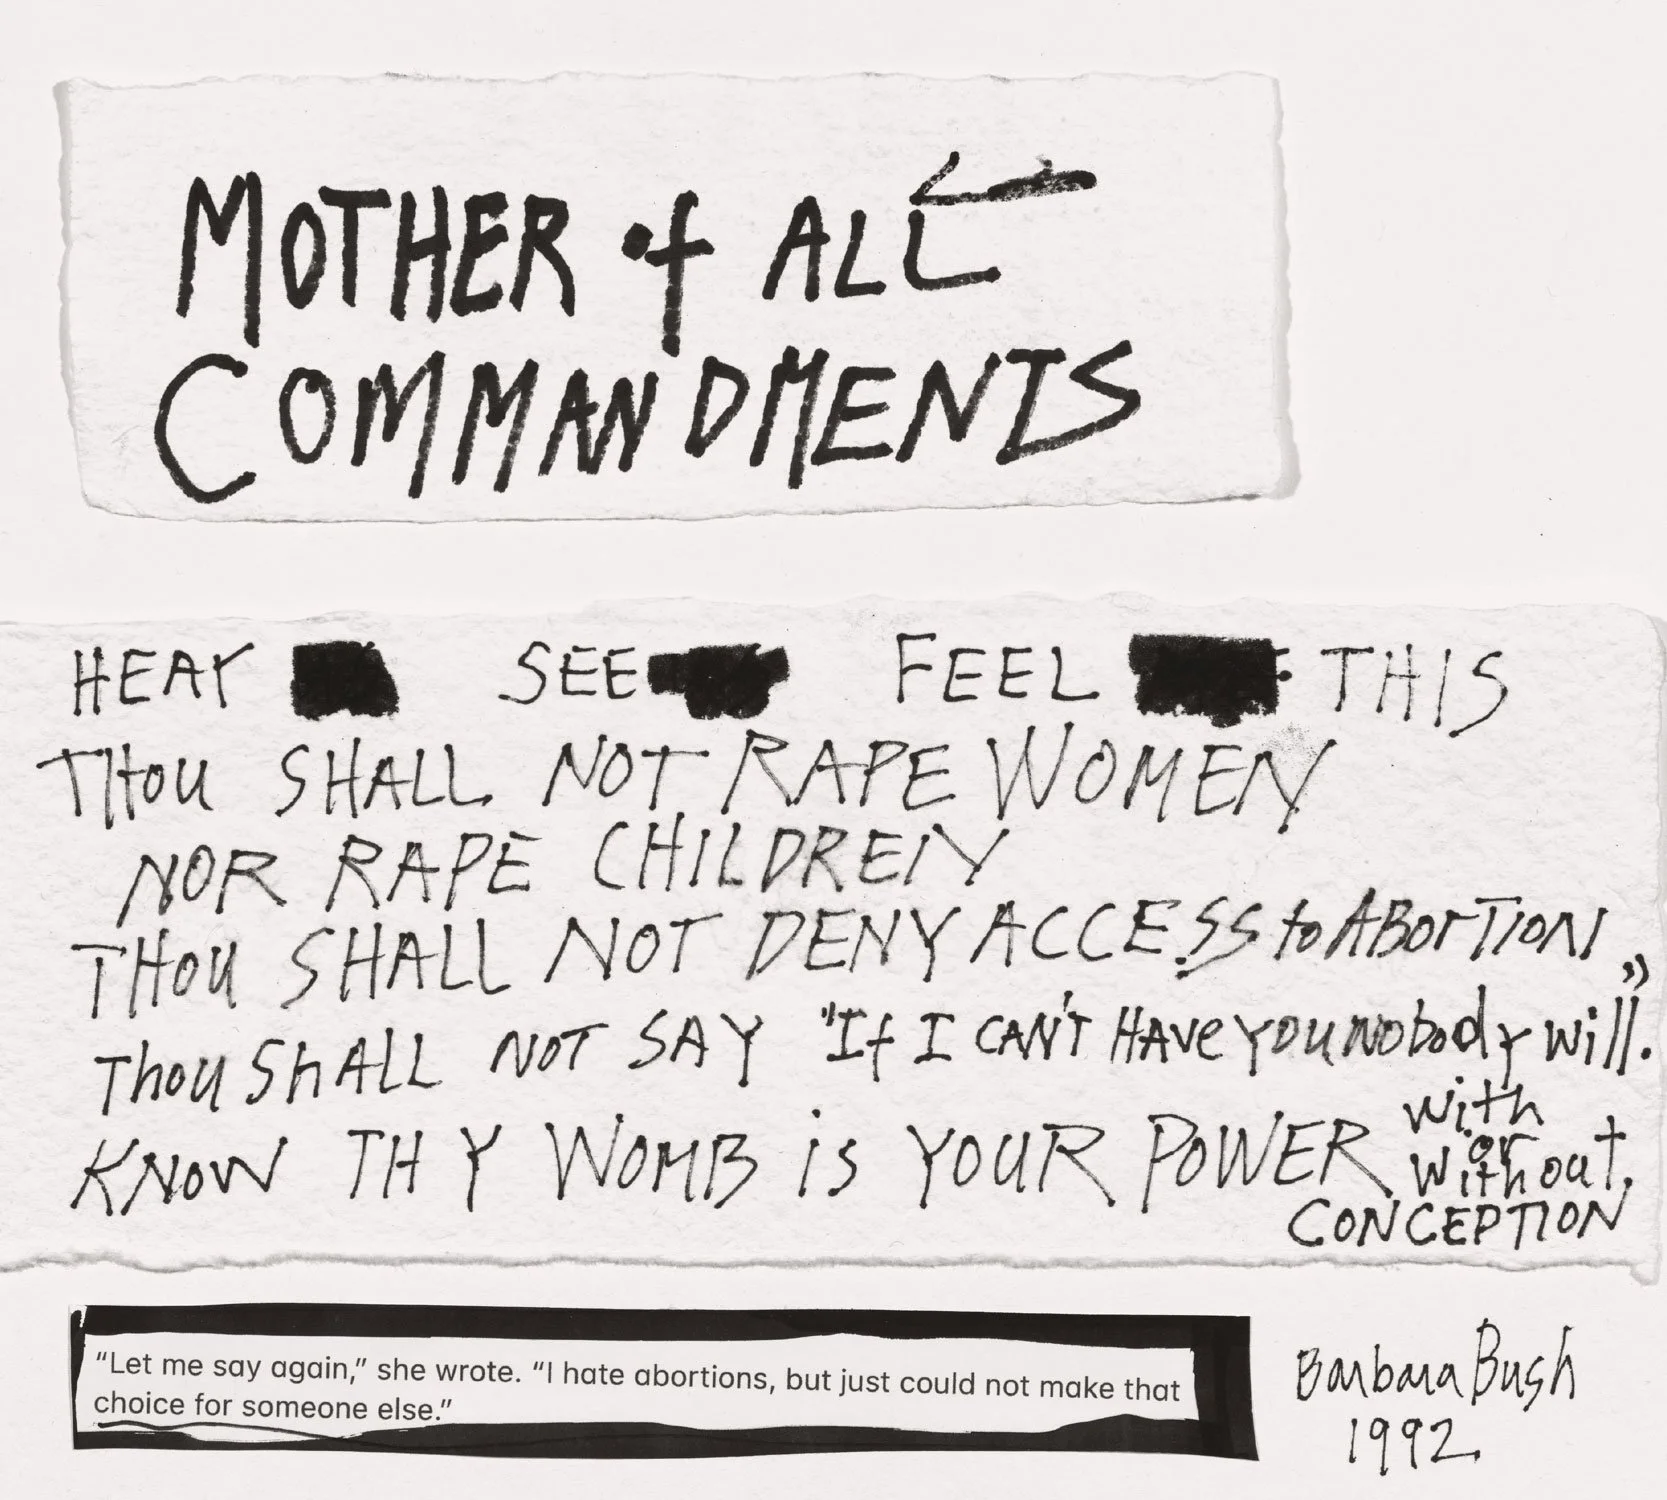 MOTHER of ALL
COMMANDMENTS
HEAR SEE FEEL THIS
THOU SHALL NOT RAPE WOMEN
NOR RAPE CHILDREN
THOU SHALL NOT DENY ACCESS to ABorTION
Thou ShALL NOT SAY "If I CAN'T HAVe You nobody will."
KNOW THY WOMB is YOUR POWER with or without CONCEPTION
“Let me say again,” she wrote. “I hate abortions, but just could not make that
choice for someone else.”
Barbara Bush
1992